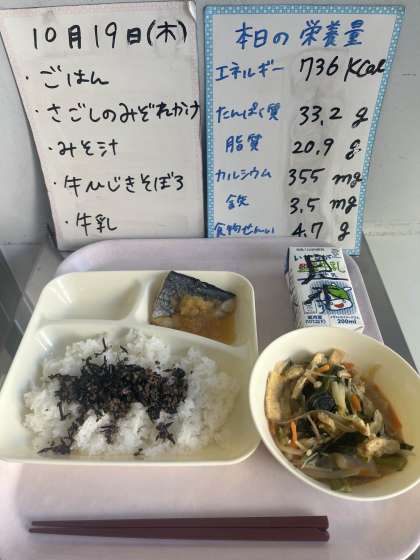 10月19日(木)
・ごはん
・さごしのみぞれかけ
・みそ汁
・牛ひじきそぼろ
・牛乳
本日の栄養量
エネルギー 736 Kcal
たんぱく質 33.2 g
脂質 20.9 g
カルシウム 355 mg
鉄 3.5 mg
食物せんい 4.7 g
200ml